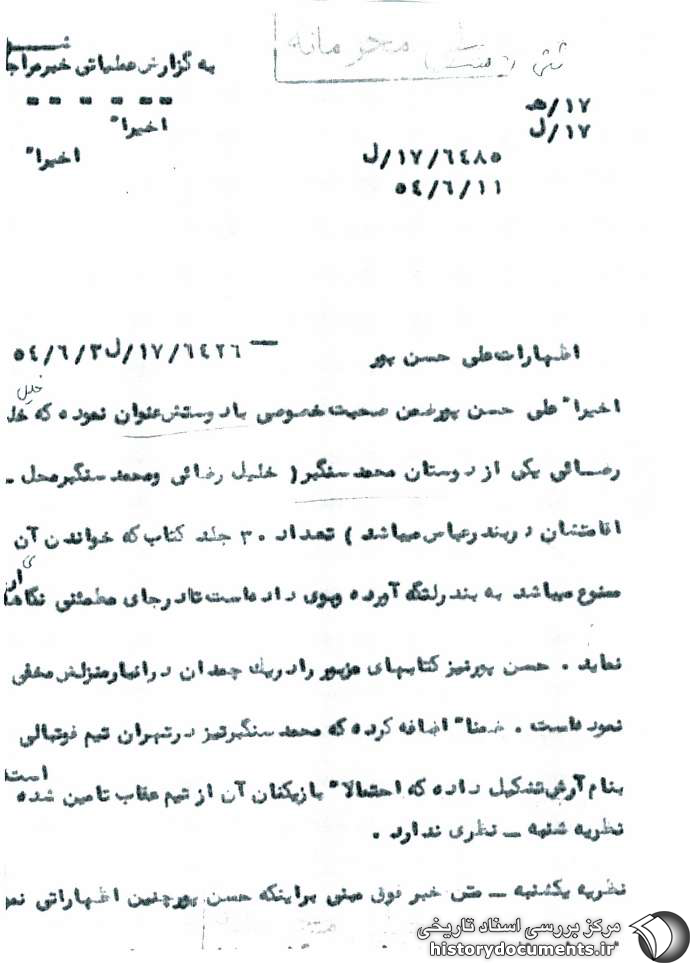 محرمانه
به گزارش عملیاتی خبر مراجـ
۱۷/هـ
۱۷/ل
اخیرا"
اخیرا"
۱۷/۶۴۸۵/ل
۵۴/۶/۱۱
اظهارات علی حسن پور — ۱۷/۶۴۲۶/ل ۵۴/۶/۳
خلیل
اخیرا" علی حسن پور ضمن صحبت خصوصی با دوستش عنوان نموده که خلـ
رضائی یکی از دوستان محمد سنگبر ( خلیل رضائی و محمد سنگبر محل ـ
اقامتشان در بندرعباس میباشد ) تعداد ۳۰ جلد کتاب که خواندن آن
ممنوع میباشد به بندرلنگه آورده و بوی داده است تا در جای مطمئنی نگاهد
نماید . حسن پور نیز کتابهای مزبور را در یک چمدان در انبار منزلش مخفی
نموده است . ضمنا" اضافه کرده که محمد سنگبر نیز در تهران تیم فوتبالی
بنام آرش تشکیل داده که احتمالا" بازیکنان آن از تیم عقاب تامین شده است
نظریه شنبه ـ نظری ندارد .
نظریه یکشنبه ـ متن خبر فوق مبنی براینکه حسن پور چنین اظهاراتی نمو
مرکز بررسی اسناد تاریخی
historydocuments.ir